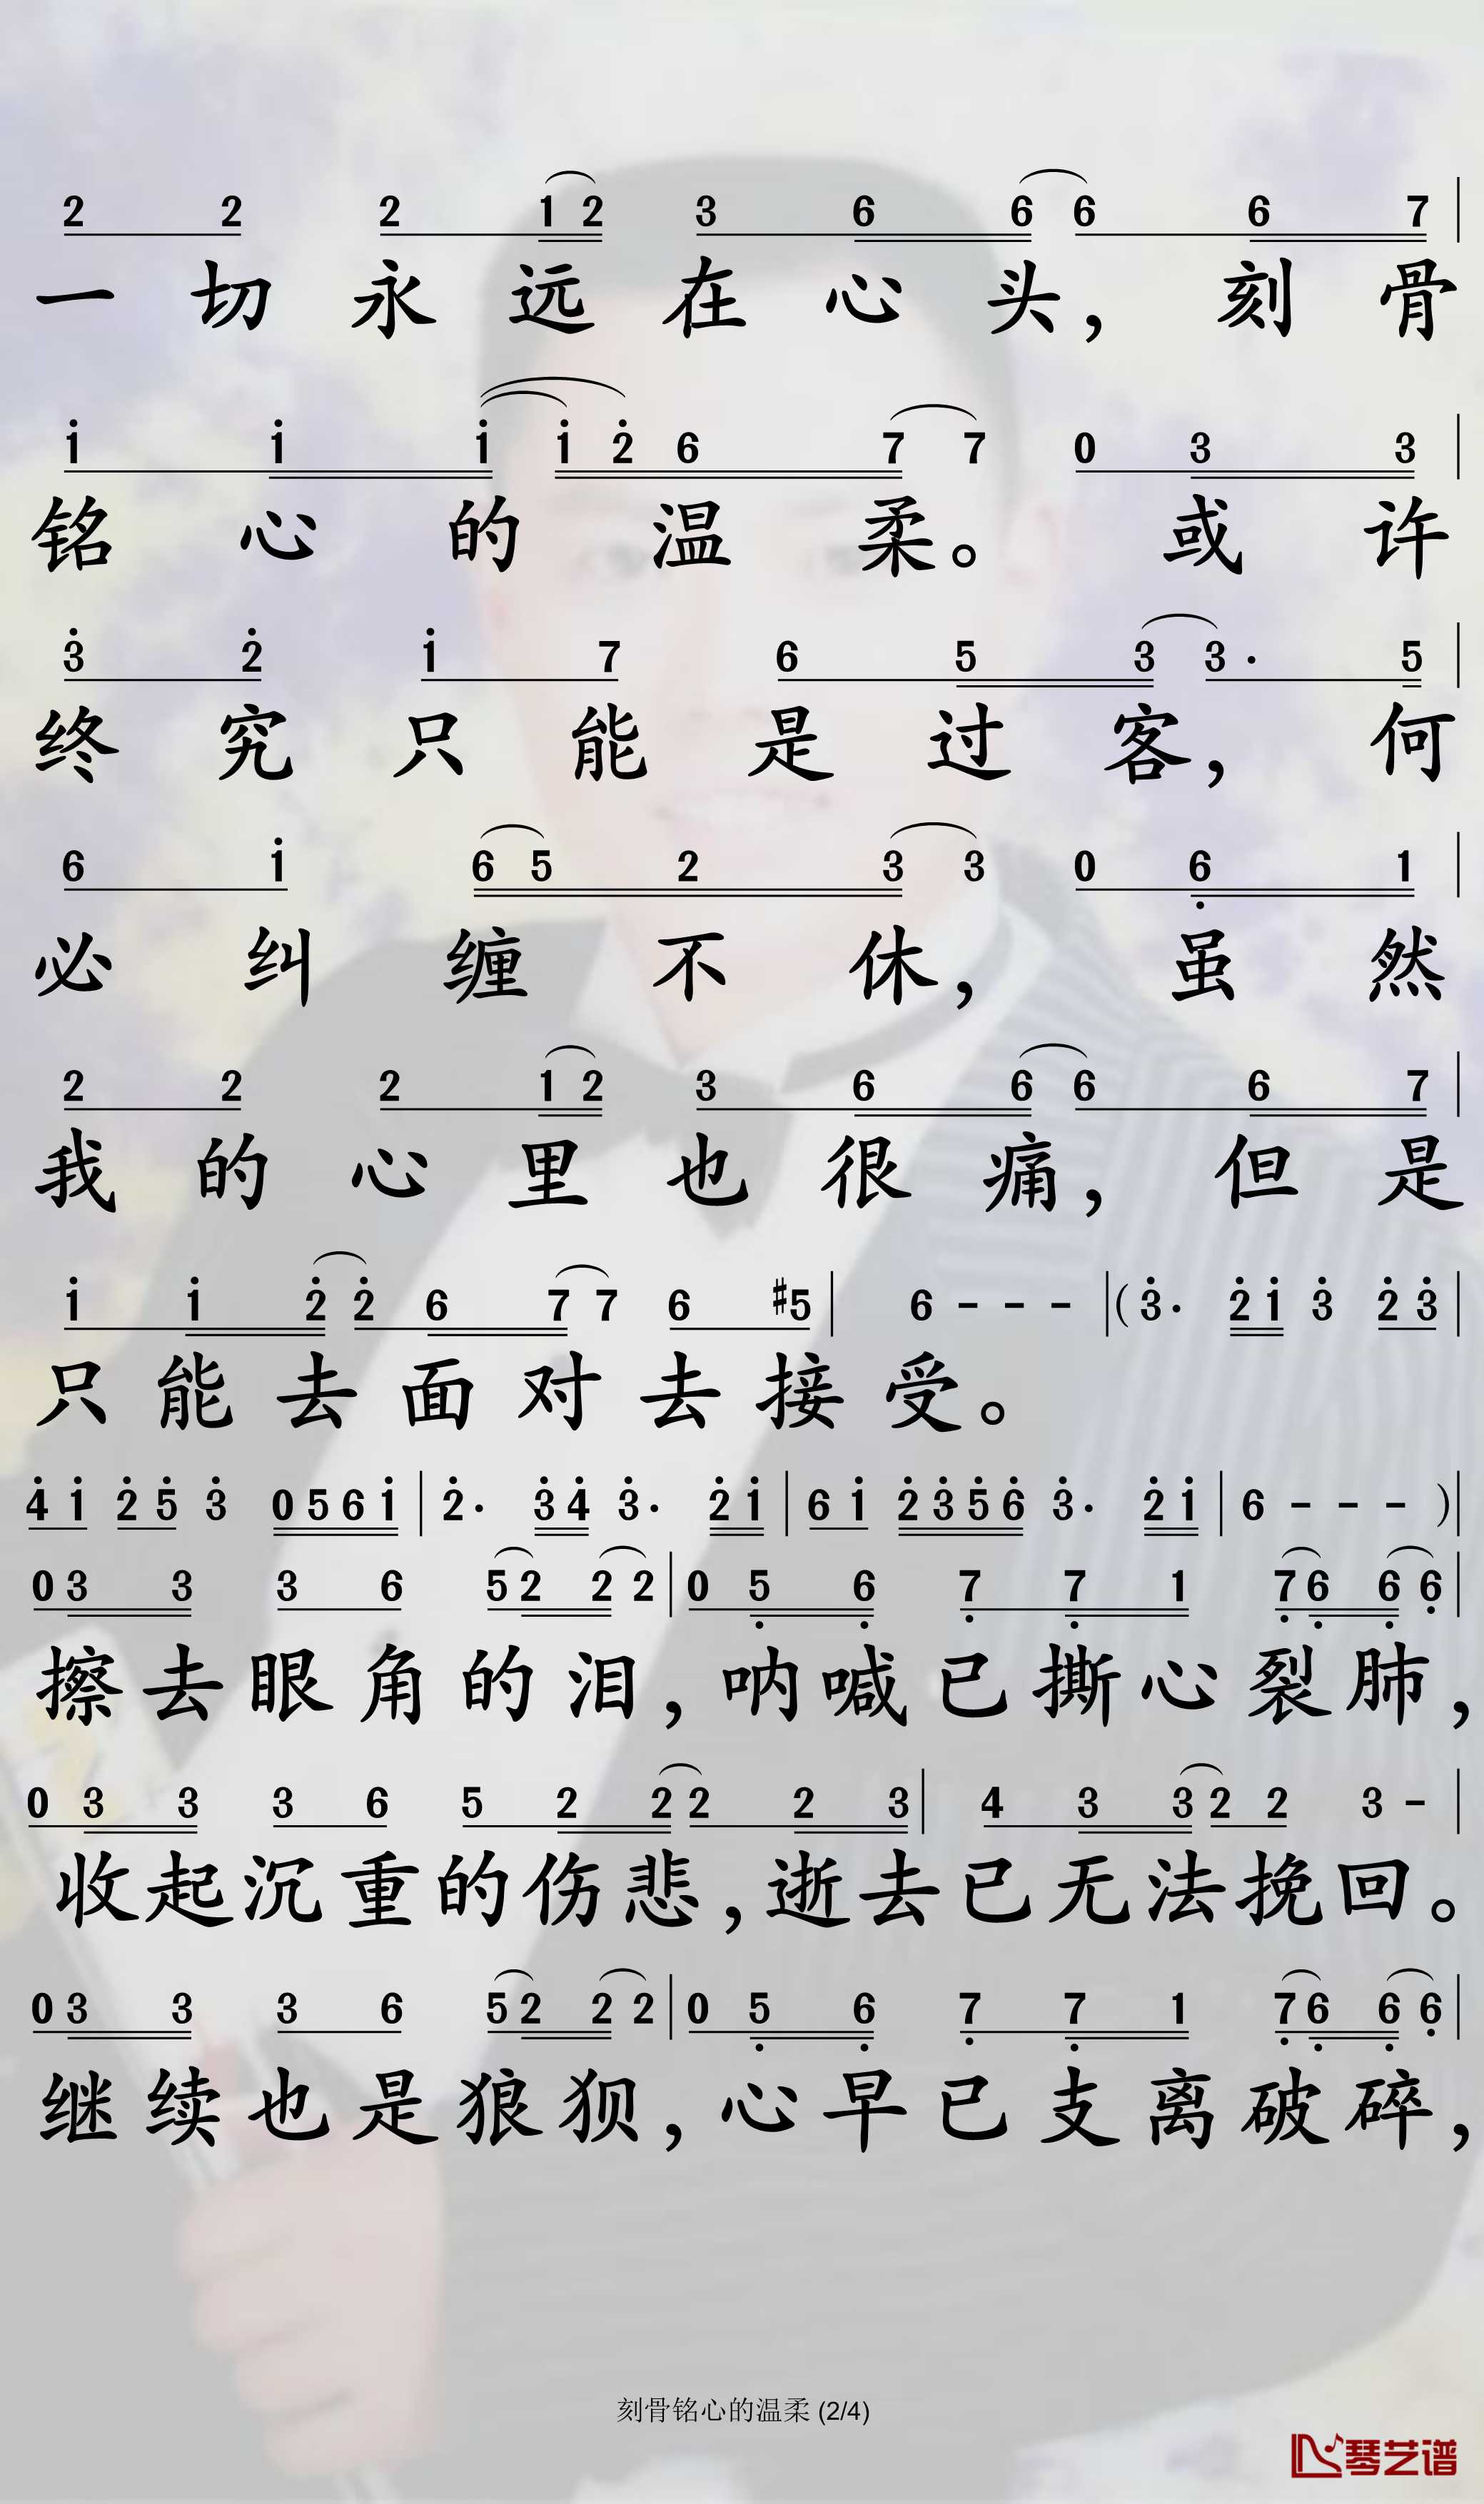 2 2 2 1 2 3 6 6 6 6 7
一切永远在心头，刻骨
1 1 1 1 2 6 7 7 0 3 3
铭心的温柔。或许
3 2 1 7 6 5 3 3· 5
终究只能是过客，何
6 1 6 5 2 3 3 0 6 1
必纠缠不休，虽然
2 2 2 1 2 3 6 6 6 6 7
我的心里也很痛，但是
1 1 2 2 6 7 7 6 #5 | 6 - - - | (3· 2 1 3 2 3 |
只能去面对去接受。
4 1 2 5 3 0 5 6 1 | 2· 3 4 3· 2 1 | 6 1 2 3 5 6 3· 2 1 | 6 - - - ) |
0 3 3 3 6 5 2 2 2 | 0 5 6 7 7 1 7 6 6 6 |
擦去眼角的泪，呐喊已撕心裂肺，
0 3 3 3 6 5 2 2 2 2 3 | 4 3 3 2 2 3 - |
收起沉重的伤悲，逝去已无法挽回。
0 3 3 3 6 5 2 2 2 | 0 5 6 7 7 1 7 6 6 6 |
继续也是狼狈，心早已支离破碎，
刻骨铭心的温柔 (2/4)
琴艺谱